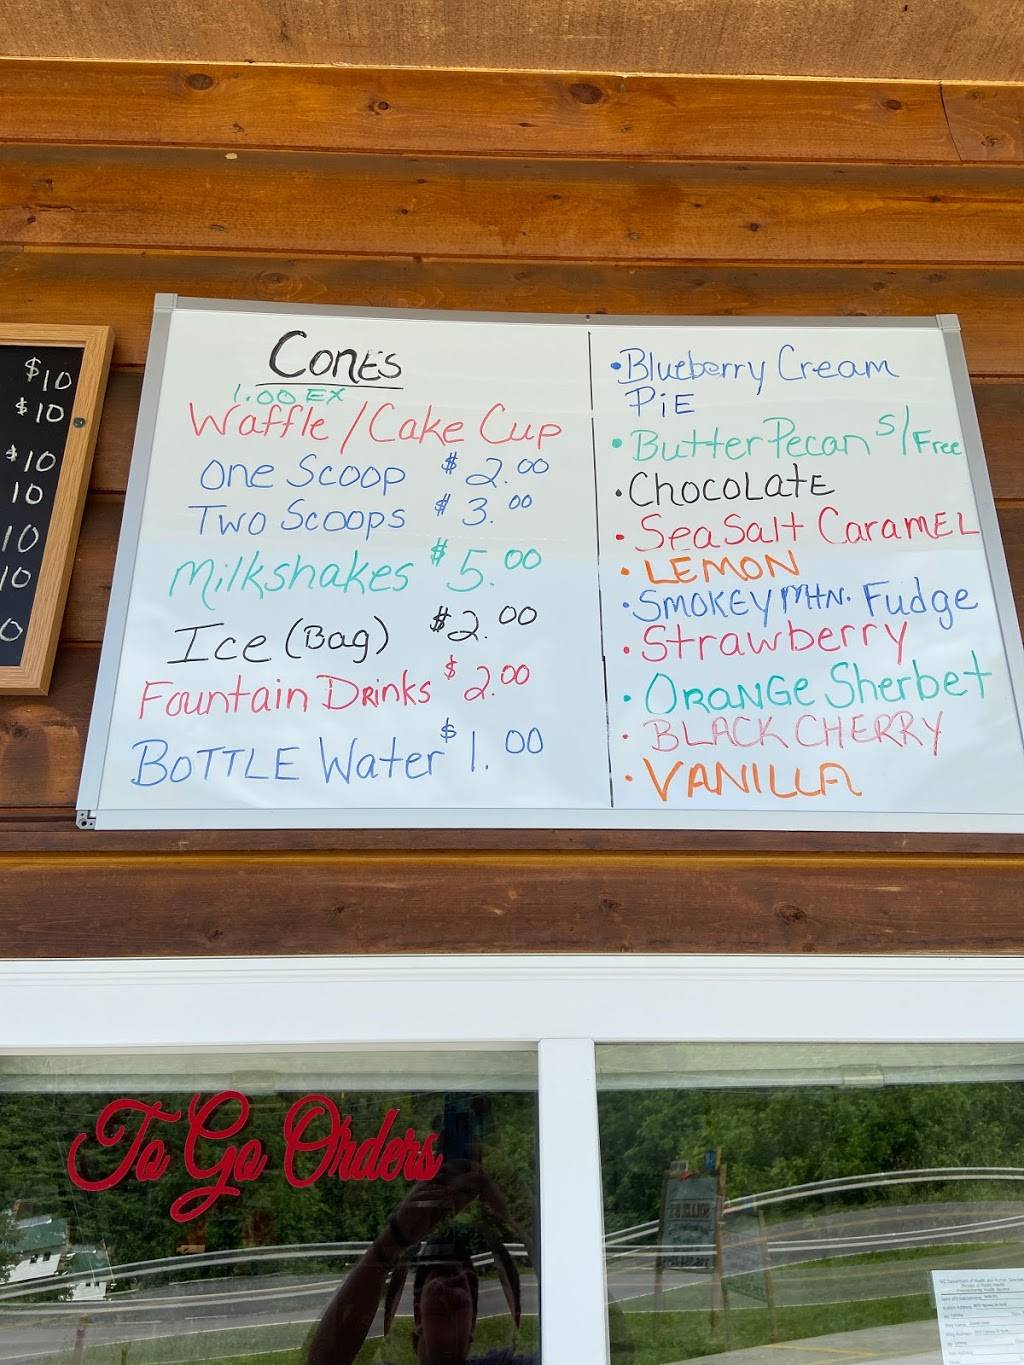 $10
$10
$10
10
10
10
0
Cones
1.00 EX
Waffle / Cake Cup
One Scoop $2.00
Two Scoops $3.00
Milkshakes $5.00
Ice (Bag) $2.00
Fountain Drinks $2.00
Bottle Water $1.00
• Blueberry Cream
Pie
• Butter Pecan s/Free
• Chocolate
• Sea Salt Caramel
• LEMON
• Smokey Mtn. Fudge
• Strawberry
• Orange Sherbet
• BLACK CHERRY
• VANILLA
To Go Orders